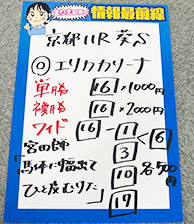 情報最前線
京都11R 葵S
◎エリカカリーナ
単勝 16 ×1000円
複勝 16 ×2000円
ワイド 16 - 11 6
3
10 各500円
17
「宮田師
馬体に幅出て
ひと皮むけた」